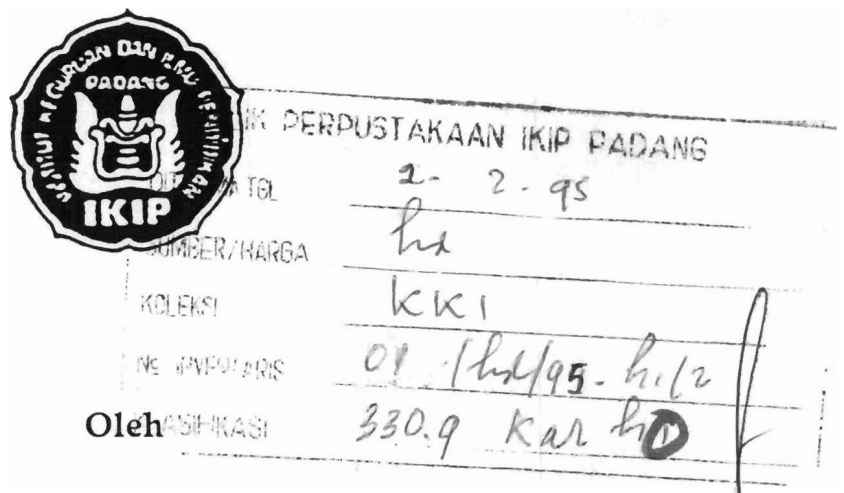 INSTITUT KEGURUAN DAN ILMU PENDIDIKAN
PADANG
IKIP
MILIK PERPUSTAKAAN IKIP PADANG
TGL 2- 2-95
SUMBER/HARGA hd
KOLEKSI KKI
No INVENTARIS 01 /hd/95-h1/2
KLASIFIKASI 330.9 Kar h
Oleh